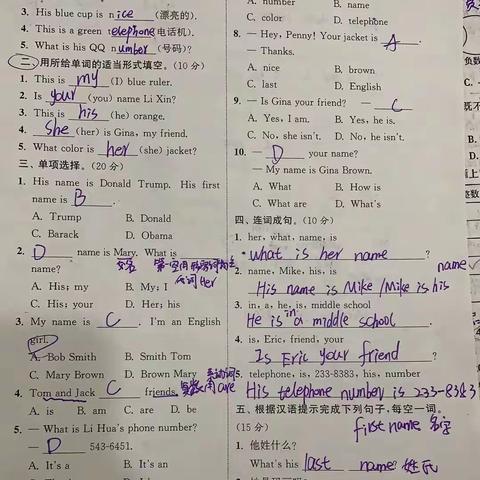 3. His blue cup is nice (漂亮的).
4. This is a green telephone电话机).
5. What is his QQ number (号码)?
二、用所给单词的适当形式填空。(10分)
1. This is my (I) blue ruler.
2. Is your (you) name Li Xin?
3. This is his (he) orange.
4. She (her) is Gina, my friend.
5. What color is her (she) jacket?
三、单项选择。(20分)
1. His name is Donald Trump. His first
name is B.
A. Trump B. Donald
C. Barack D. Obama
2. D name is Mary. What is
name?
A. His; my B. My; I
C. His; your D. Her; his
her
3. My name is C. I'm an English
girl.
A. Bob Smith B. Smith Tom
C. Mary Brown D. Brown Mary
4. Tom and Jack C friends.
复数用are
A. is B. am C. are D. be
5. — What is Li Hua's phone number?
— D 543-6451.
A. It's a B. It's an
A. number B. name
C. color D. telephone
8. — Hey, Penny! Your jacket is A.
— Thanks.
A. nice B. brown
C. last D. English
9. — Is Gina your friend? — C
A. Yes, I am. B. Yes, he is.
C. No, she isn't. D. No, he isn't.
10. — D your name?
— My name is Gina Brown.
A. What B. How is
C. What are D. What's
四、连词成句。(10分)
1. her, what, name, is
what is her name ?
2. name, Mike, his, is
name
His name is Mike / Mike is his
3. in, a, he, is, middle school
He is in a middle school.
4. is, Eric, friend, your
Is Eric your friend ?
5. telephone, is, 233-8383, his, number
His telephone number is 233-8383
五、根据汉语提示完成下列句子,每空一词。
(15分)
first name 名字
1. 他姓什么?
What's his last name? 姓氏